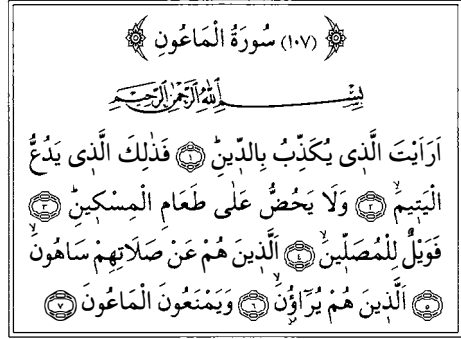 (١٠٧) سُورَةُ الْمَاعُونِ
بِسْمِ اللّٰهِ الرَّحْمٰنِ الرَّحِيمِ
اَرَاَيْتَ الَّذ۪ى يُكَذِّبُ بِالدّ۪ينِۜ ﴿١﴾ فَذٰلِكَ الَّذ۪ى يَدُعُّ
الْيَت۪يمَۙ ﴿٢﴾ وَلَا يَحُضُّ عَلٰى طَعَامِ الْمِسْك۪ينِۜ ﴿٣﴾
فَوَيْلٌ لِلْمُصَلّ۪ينَۙ ﴿٤﴾ اَلَّذ۪ينَ هُمْ عَنْ صَلَاتِهِمْ سَاهُونَۙ
﴿٥﴾ اَلَّذ۪ينَ هُمْ يُرَٓاؤُ۫نَۙ ﴿٦﴾ وَيَمْنَعُونَ الْمَاعُونَ ﴿٧﴾